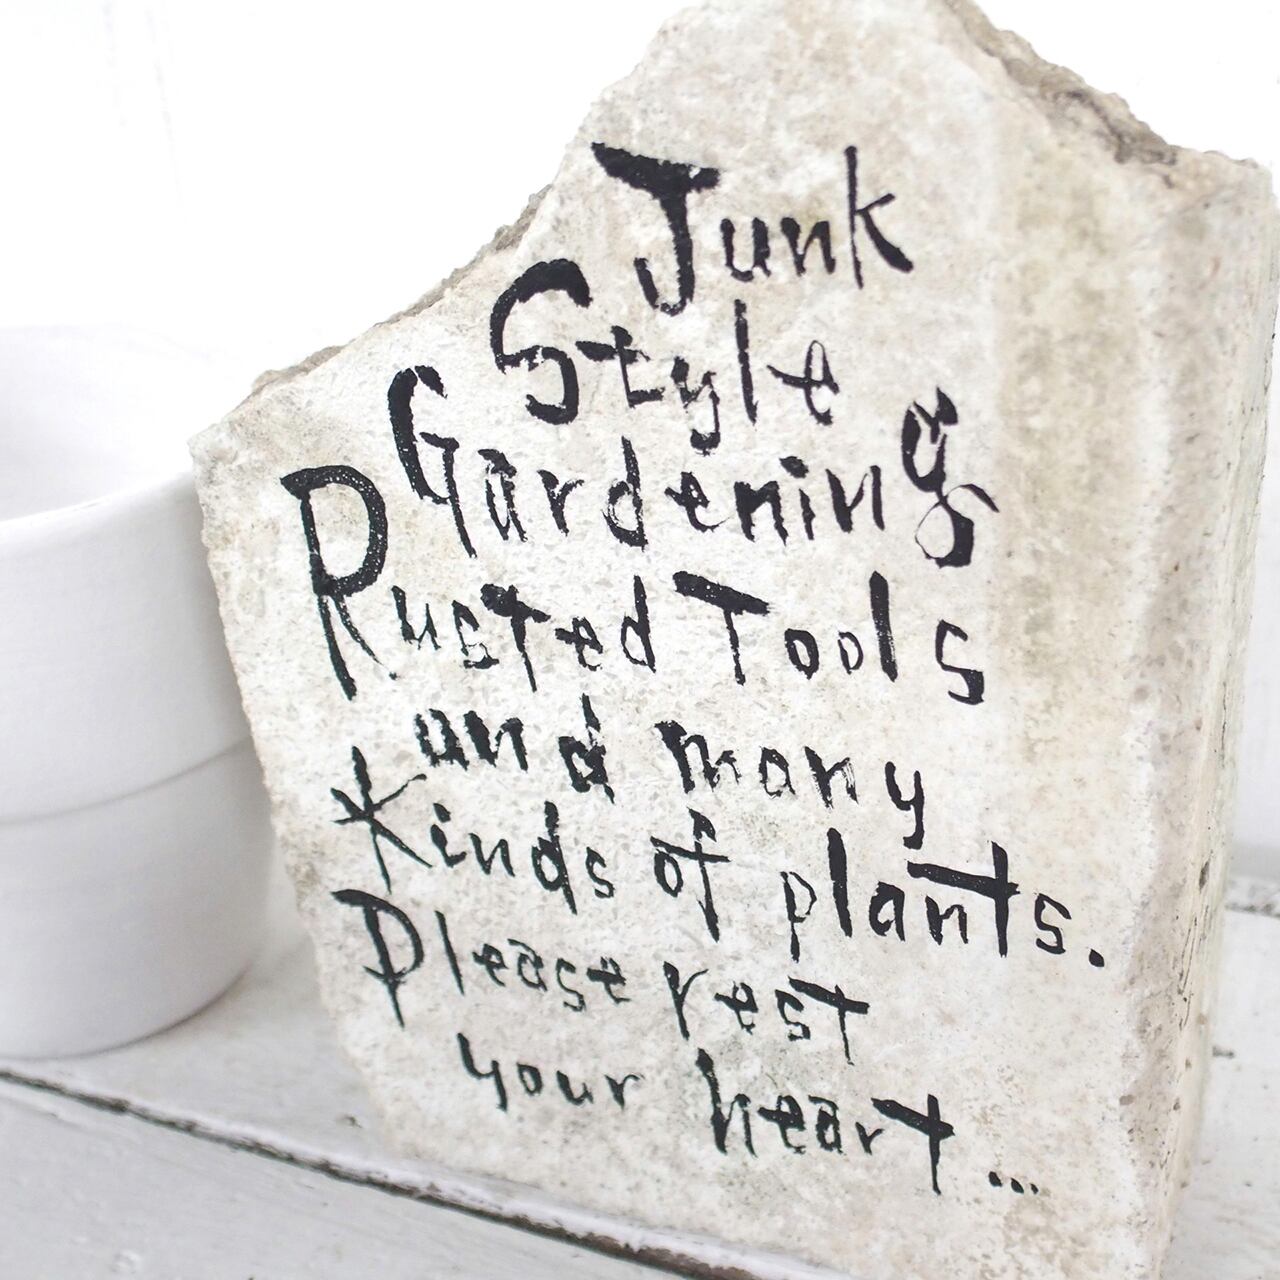 Junk
Style
Gardening
Rusted Tools
and many
Kinds of plants.
Please rest
your heart...